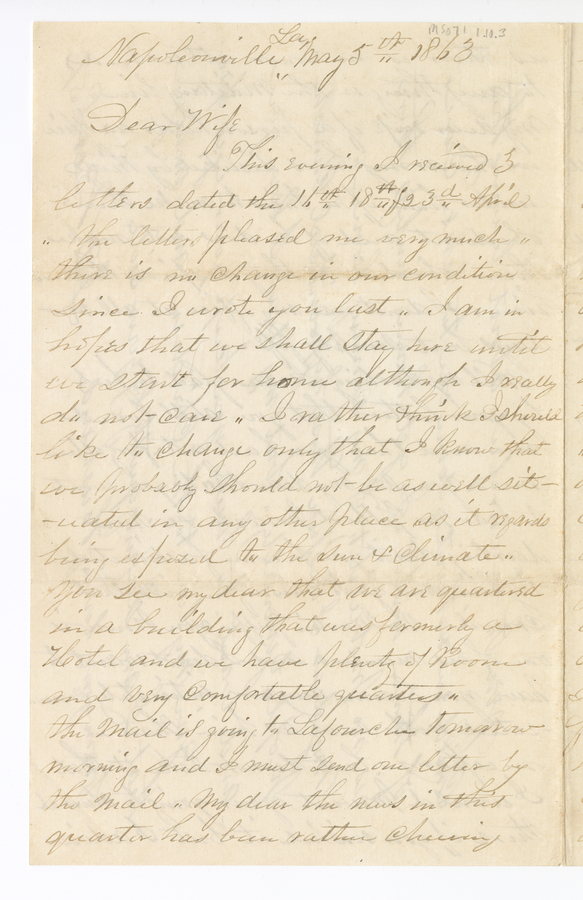 MS071 1.10.3
Napoleonville La, May 5th 1863
Dear Wife
This evening I recieved 3
letters dated the 16th 18th & 23d April
" the letters pleased me very much "
there is no change in our condition
since I wrote you last " I am in
hopes that we shall stay here until
we start for home although I really
do not care " I rather think I should
like to change only that I know that
we probably should not be as well sit-
-uated in any other place as it regards
being exposed to the sun & climate "
You see my dear that we are quartered
in a building that was formerly a
Hotel and we have plenty of Room
and very comfortable quarters "
the mail is going to Lafourche tomorrow
morning and I must send one letter by
the mail " My dear the news in this
quarter has been rather cheering